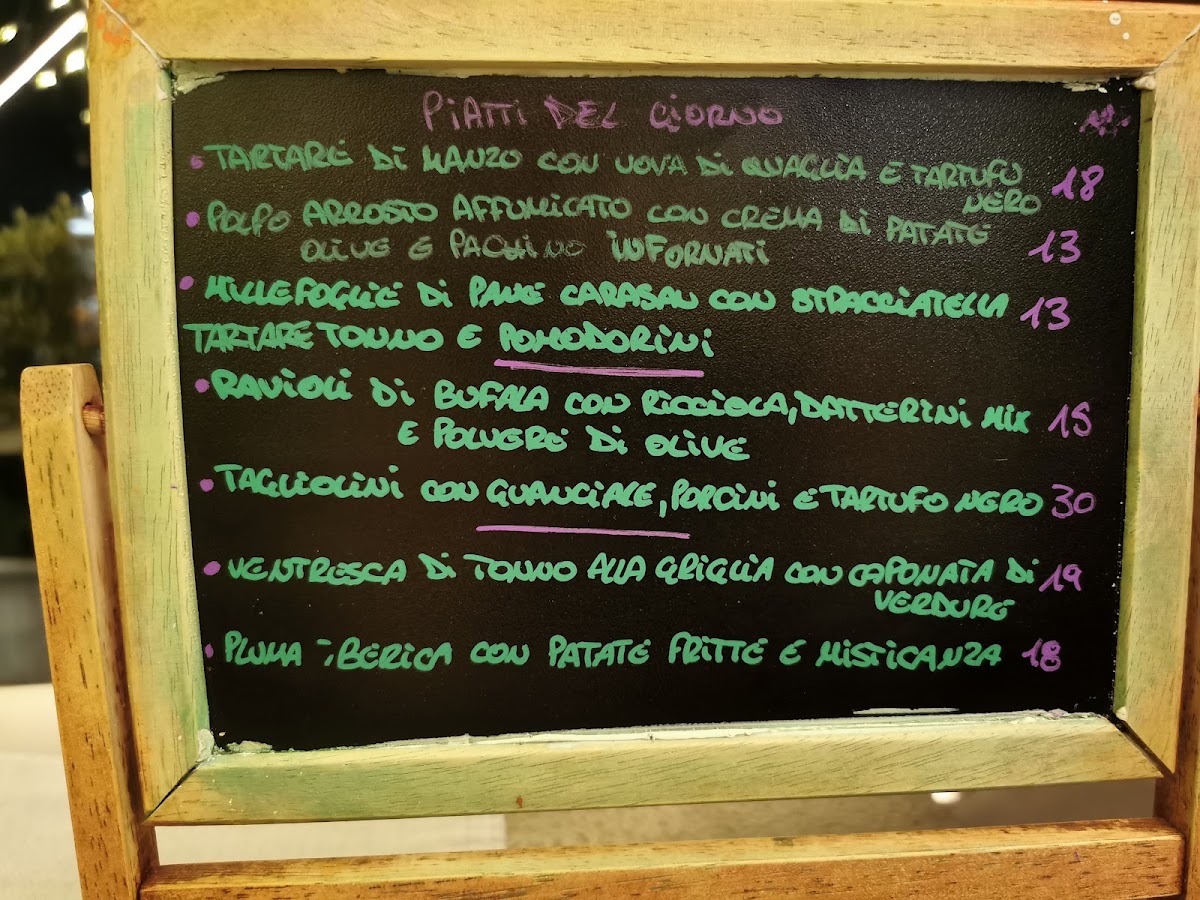 PIATTI DEL GIORNO
• TARTARE DI MANZO CON UOVA DI QUAGLIA E TARTUFO NERO 18
• POLPO ARROSTO AFFUMICATO CON CREMA DI PATATE 13
OLIVE E PACHINO INFORNATI
• MILLEFOGLIE DI PANE CARASAU CON STRACCIATELLA 13
TARTARE TONNO E POMODORINI
• RAVIOLI DI BUFALA CON RICCIOLA, DATTERINI MIX 15
E POLVERE DI OLIVE
• TAGLIOLINI CON GUANCIALE, PORCINI E TARTUFO NERO 30
• VENTRESCA DI TONNO ALLA GRIGLIA CON CAPONATA DI 19
VERDURE
• PLUMA IBERICA CON PATATE FRITTE E MISTICANZA 18